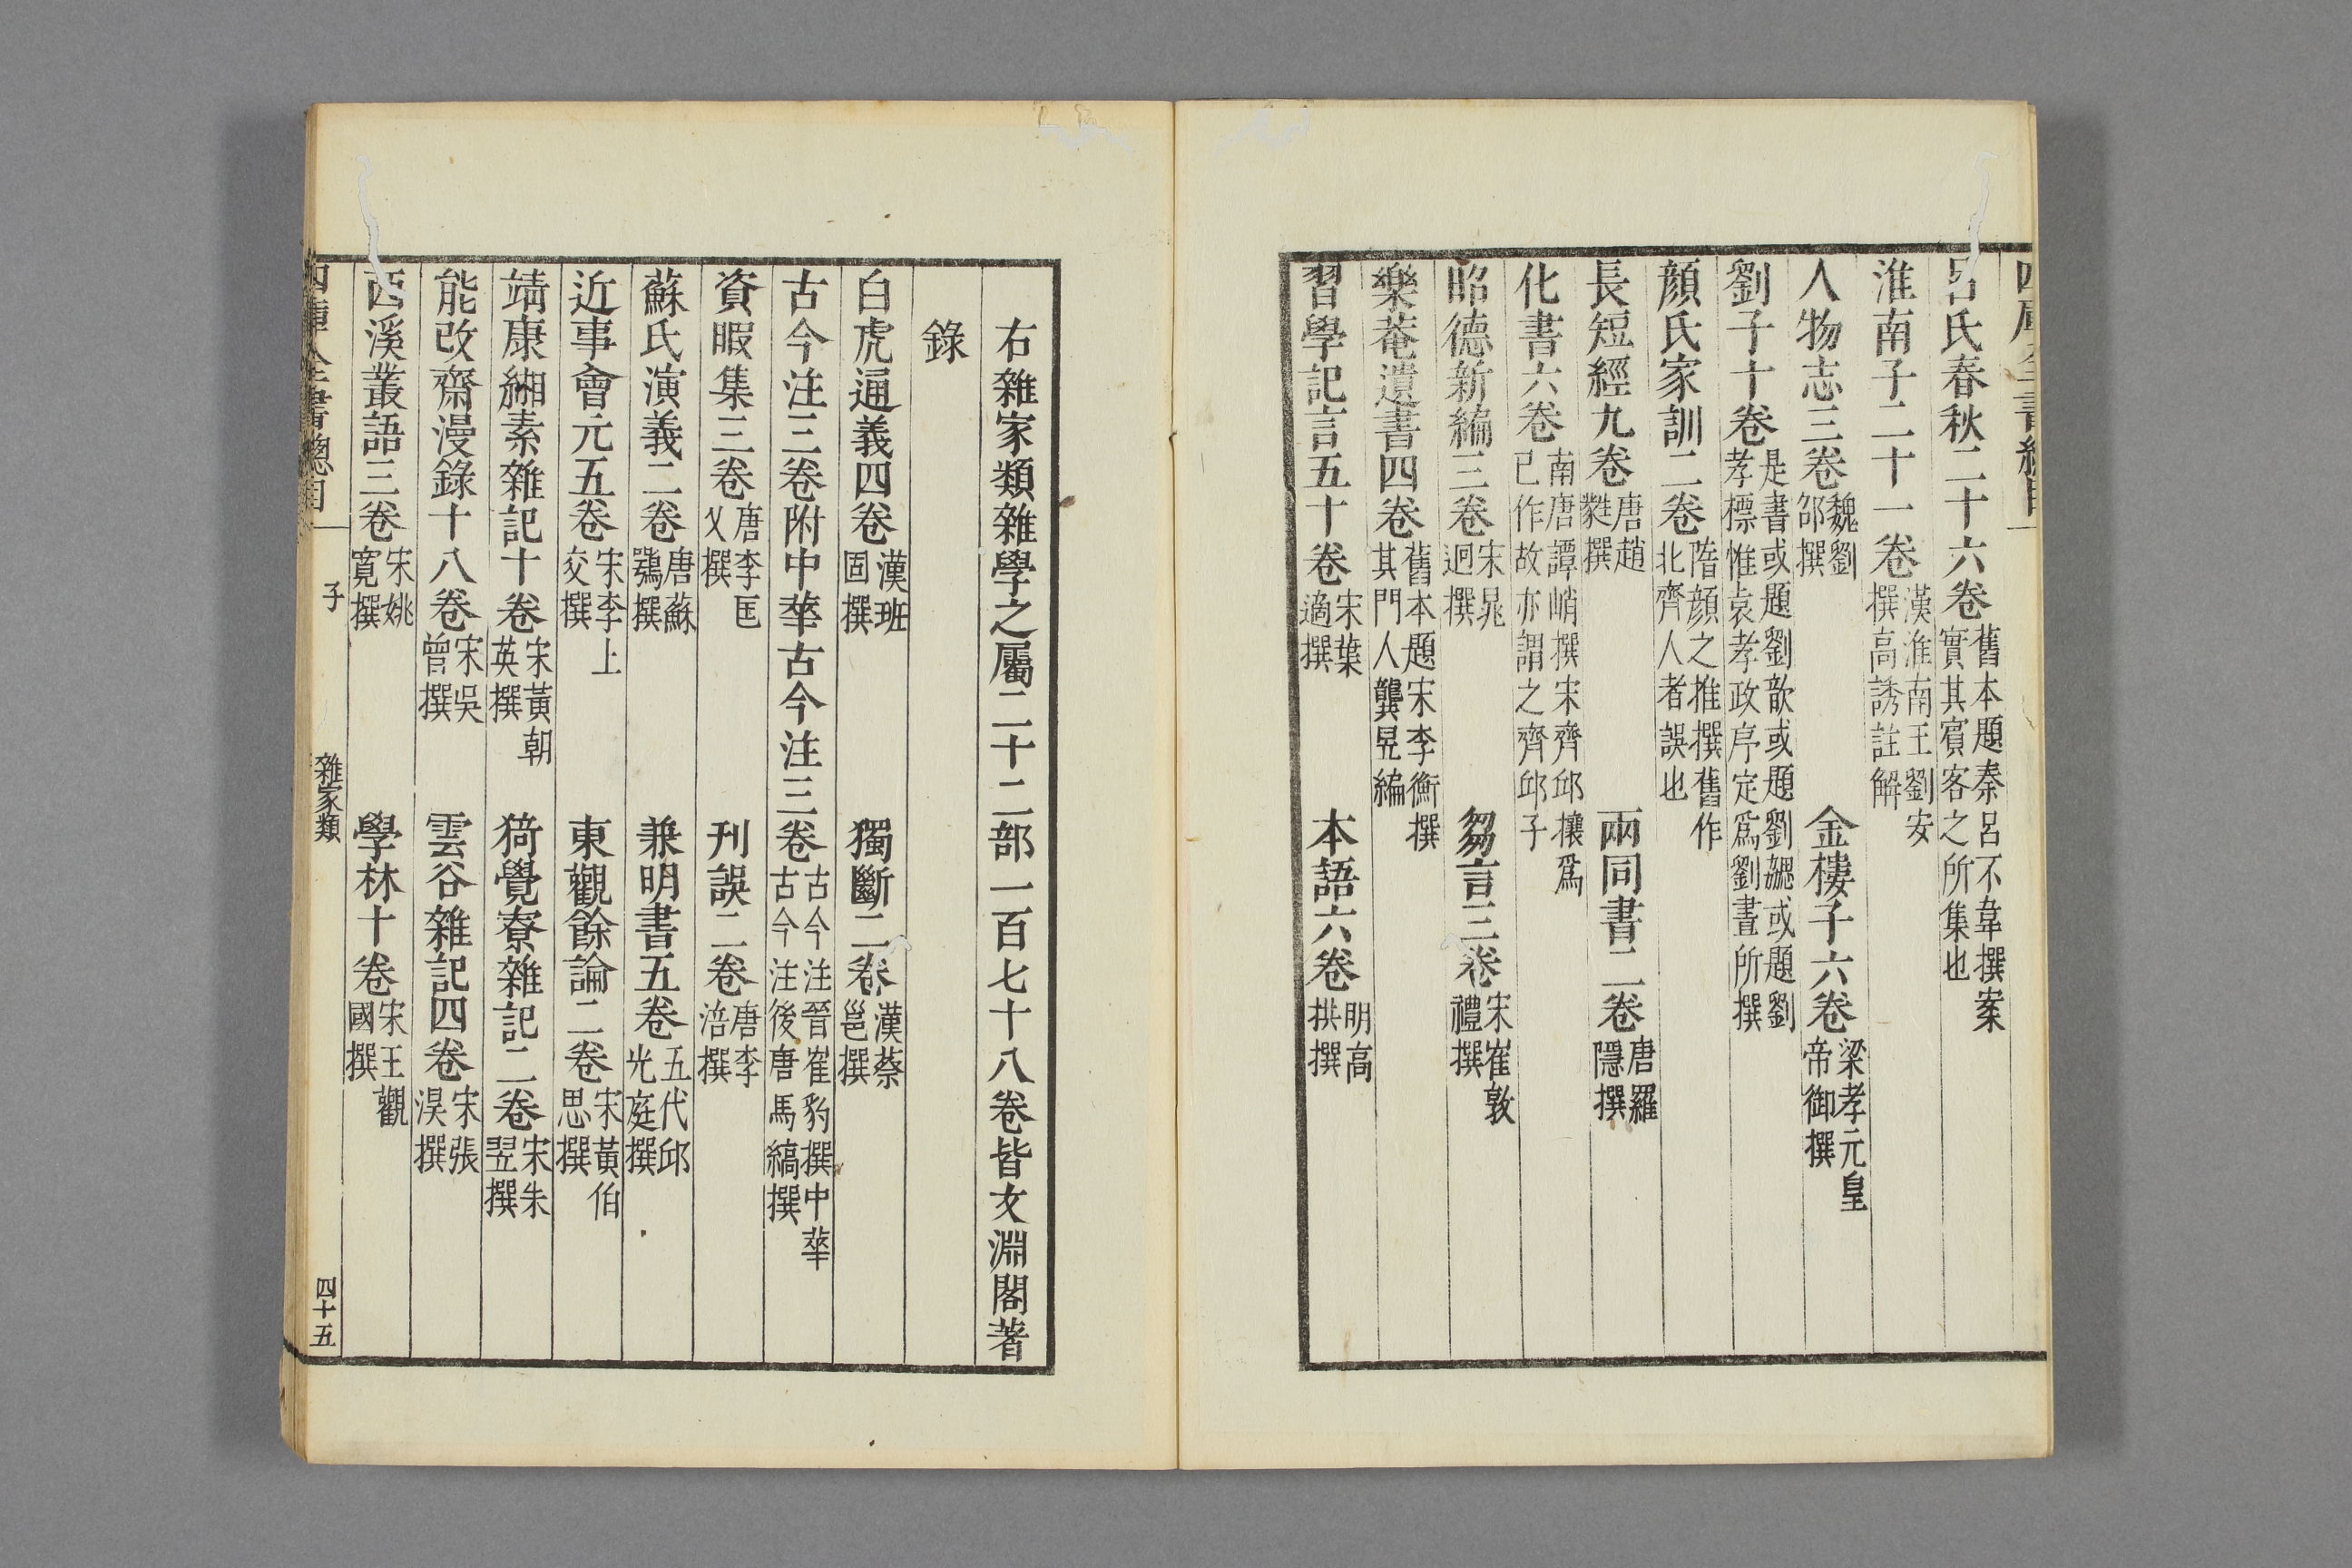 四庫全書總目
呂氏春秋二十六卷 舊本題秦呂不韋撰案實其賓客之所集也
淮南子二十一卷 漢淮南王劉安撰高誘註解
人物志三卷 魏劉邵撰 金樓子六卷 梁孝元皇帝御撰
劉子十卷 是書或題劉歆或題劉勰或題劉孝標惟袁孝政序定爲劉晝所撰
顏氏家訓二卷 隋顏之推撰舊作北齊人者誤也
長短經九卷 唐趙蕤撰 兩同書二卷 唐羅隱撰
化書六卷 南唐譚峭撰宋齊邱攘爲已作故亦謂之齊邱子
昭德新編三卷 宋晁迥撰 芻言三卷 宋崔敦禮撰
樂菴遺書四卷 舊本題宋李衡撰其門人龔昱編
習學記言五十卷 宋葉適撰 本語六卷 明高拱撰
右雜家類雜學之屬二十二部一百七十八卷皆文淵閣著
錄
白虎通義四卷 漢班固撰 獨斷二卷 漢蔡邕撰
古今注三卷附中華古今注三卷 古今注晉崔豹撰中華古今注後唐馬縞撰
資暇集三卷 唐李匡乂撰 刊誤二卷 唐李涪撰
蘇氏演義二卷 唐蘇鶚撰 兼明書五卷 五代邱光庭撰
近事會元五卷 宋李上交撰 東觀餘論二卷 宋黃伯思撰
靖康緗素雜記十卷 宋黃朝英撰 猗覺寮雜記二卷 宋朱翌撰
能改齋漫錄十八卷 宋吳曾撰 雲谷雜記四卷 宋張淏撰
西溪叢語三卷 宋姚寬撰 學林十卷 宋王觀國撰
四庫全書總目 子 雜家類 四十五